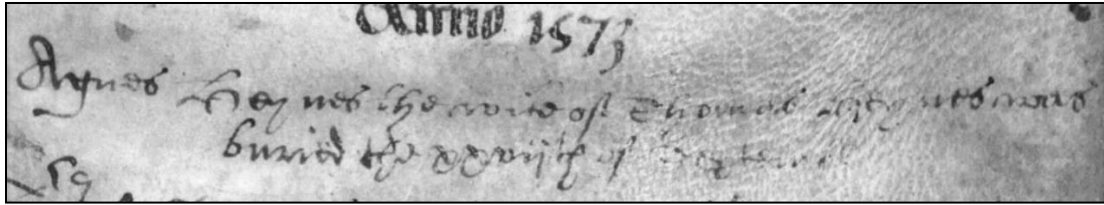 Anno 1573
Agnes Heynes the wife of Thomas Heynes was
buried the xxviijth of September